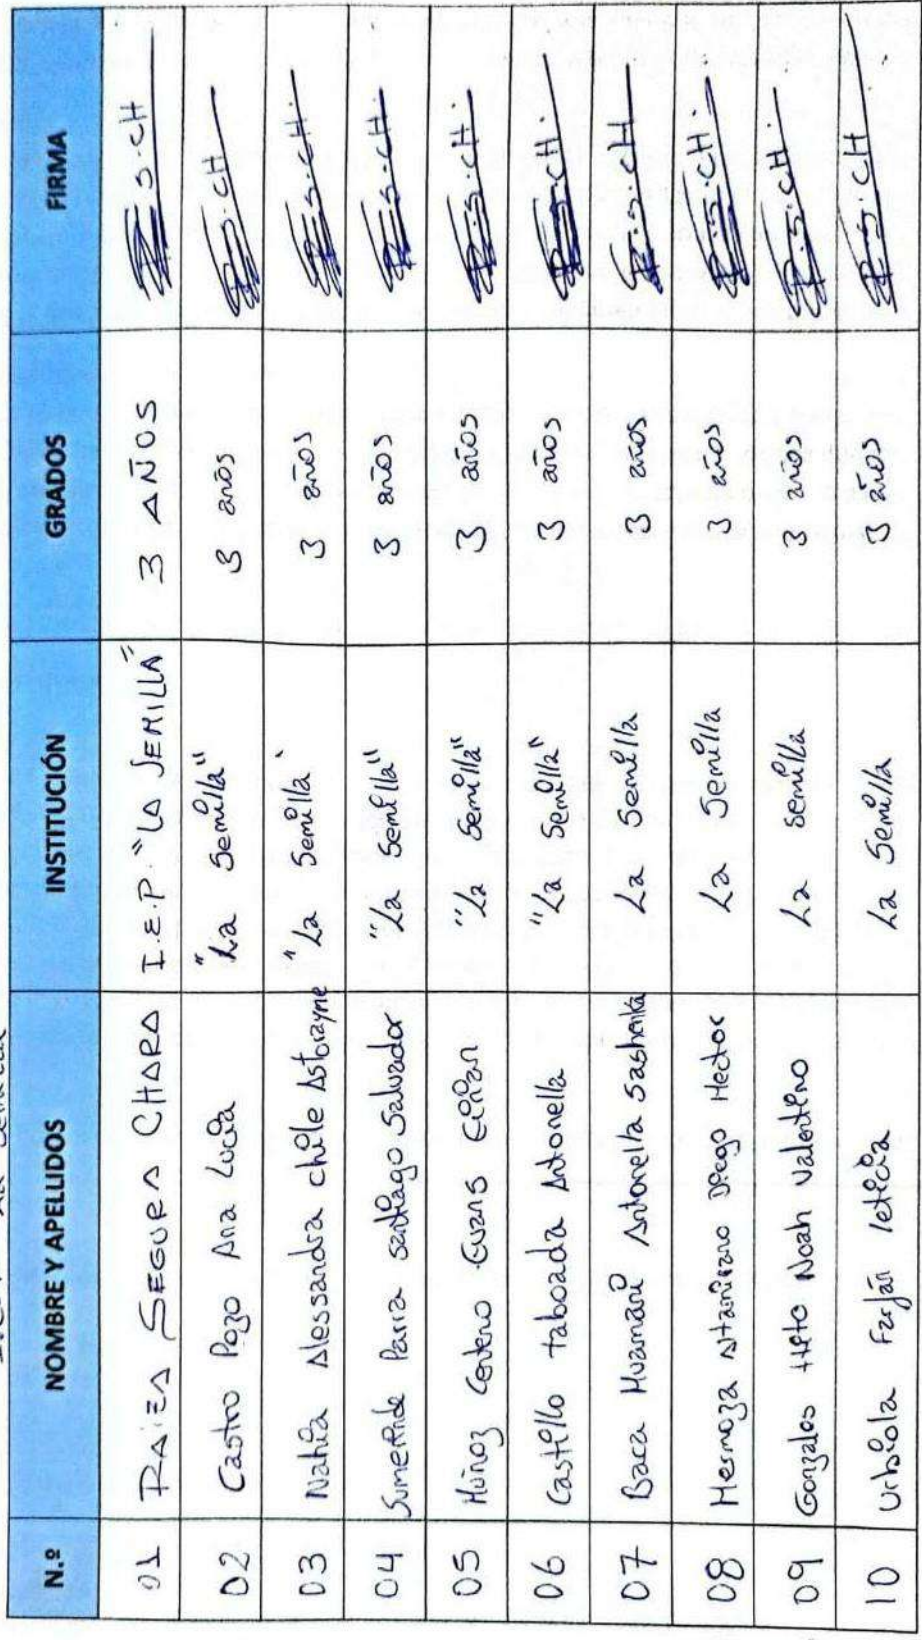 N.º NOMBRE Y APELLIDOS INSTITUCIÓN GRADOS FIRMA
01 SEGURA CHARA I.E.P. "LA SEMILLA" 3 AÑOS S.CH
02 Castro Pozo Ana Lucía "La Semilla" 3 años S.CH
03 Nahia Alessandra Chile Astorayne "La Semilla" 3 años S.CH.
04 Parra Santiago Salvador "La Semilla" 3 años S.CH.
05 Muñoz Centeno "La Semilla" 3 años S.CH.
06 Castillo taboada Antonella "La Semilla" 3 años S.CH.
07 Baca Huamaní Antonella Sashenka La Semilla 3 años S.CH
08 Hermoza Altamirano Diego Hector La Semilla 3 años S.CH.
09 Gonzales Noah Valentino La Semilla 3 años S.CH.
10 Urbiola Farfán leticia La Semilla 3 años S.CH